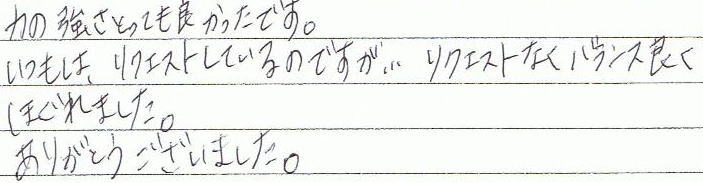 力の強さとっても良かったです。
いつもは、リクエストしているのですが… リクエストなくバランス良く
ほぐれました。
ありがとうございました。